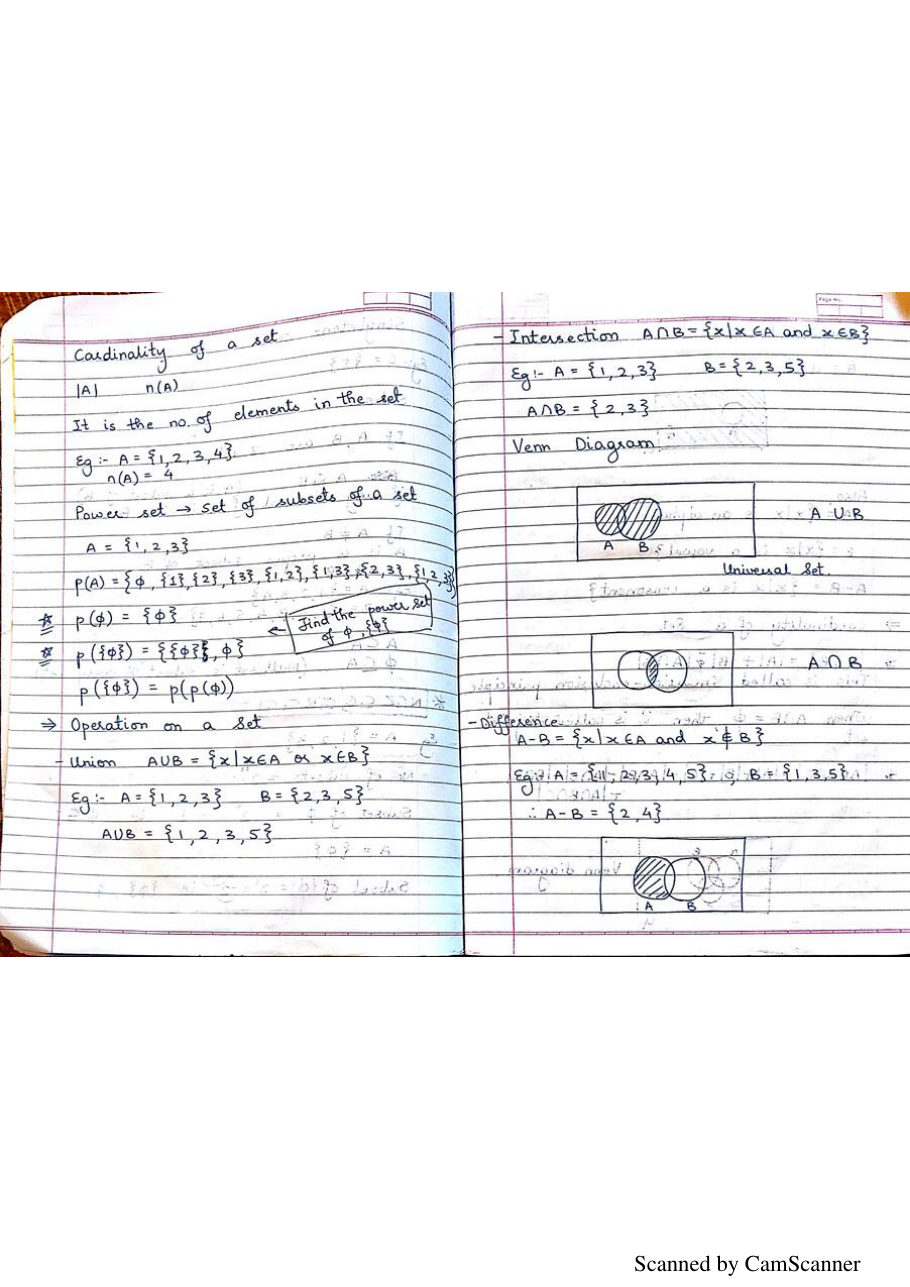 Cardinality of a set
|A| n(A)
It is the no. of elements in the set
Eg :- A = {1, 2, 3, 4}
n(A) = 4
Power set → set of subsets of a set
A = {1, 2, 3}
p(A) = {ϕ, {1}, {2}, {3}, {1,2}, {1,3}, {2,3}, {1,2,3}}
p(ϕ) = {ϕ}
← Find the power set
of ϕ, {ϕ}
p({ϕ}) = {{ϕ}, ϕ}
p({ϕ}) = p(p(ϕ))
⇒ Operation on a set
- Union A∪B = {x|x∈A or x∈B}
Eg :- A = {1, 2, 3} B = {2, 3, 5}
A∪B = {1, 2, 3, 5}
Page No.
- Intersection A∩B = {x|x∈A and x∈B}
Eg :- A = {1, 2, 3} B = {2, 3, 5}
A∩B = {2, 3}
Venn Diagram
A ∪ B
A B
Universal Set
A ∩ B
- Difference
A-B = {x|x∈A and x∉B}
Eg :- A = {1, 2, 3, 4, 5} B = {1, 3, 5}
∴ A-B = {2, 4}
A B
Scanned by CamScanner